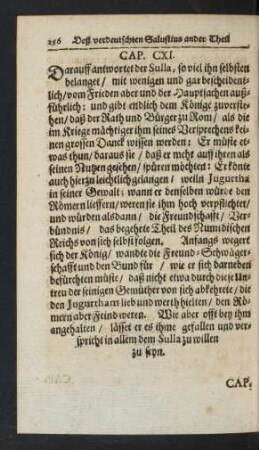 256 Deß verdeutschten Salustius ander Theil
CAP. CXI.
Darauff antwortet der Sulla, so viel ihn selbsten
belanget / mit wenigen und gar bescheident-
lich / vom Frieden aber und der Hauptsachen auß-
führlich: und gibt endlich dem Könige zuverste-
hen / daß der Rath und Bürger zu Rom / als die
im Kriege mächtiger ihm seines Versprechens kei-
nen grossen Danck wissen werden: Er müste et-
was thun / daraus sie / daß er mehr auff ihren als
seinen Nutzen gesehen / spüren möchten: Er könte
auch hierzu leichtlich gelangen / weiln Jugurtha
in seiner Gewalt: wann er denselben würde den
Römern lieffern / weren sie ihm hoch verpflichtet /
und würden alsdann / die Freundschafft / Ver-
bündnis / das begehrte Theil des Numidischen
Reichs von sich selbst folgen. Anfangs wegert
sich der König / wandte die Freund-Schwäger-
schafft und den Bund für / wie er sich darneben
befürchten müste / daß nicht etwa durch diese Un-
treu der seinigen Gemüther von sich abkehrete / die
den Jugurtham lieb und werth hielten / den Rö-
mern aber Feind weren. Wie aber offt bey ihm
angehalten / lässet er es ihme gefallen und ver-
spricht in allem dem Sulla zu willen
zu seyn.
CAP.